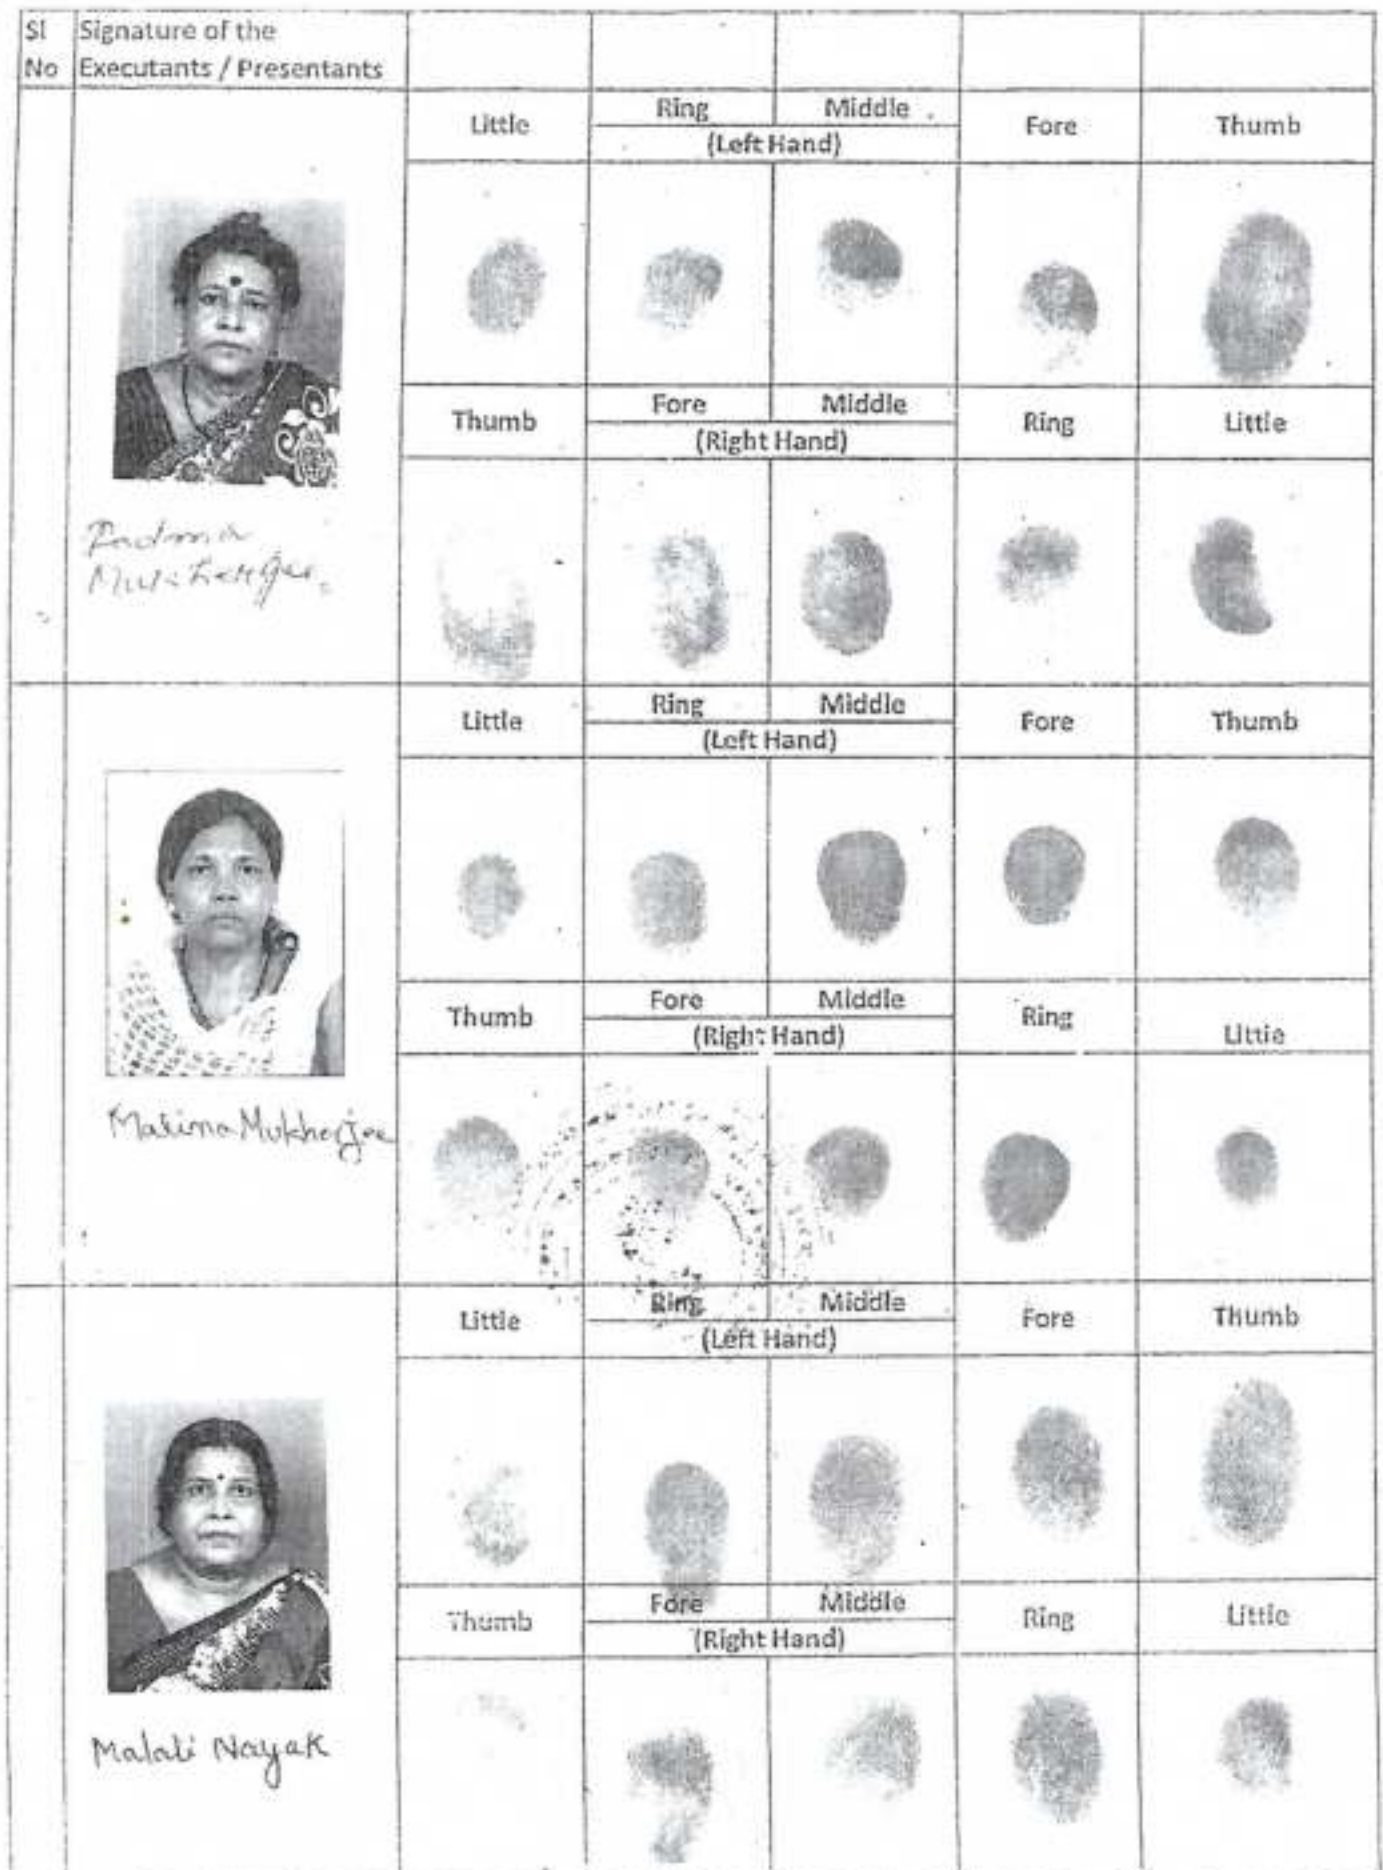 Sl
No
Signature of the
Executants / Presentants
Little
Ring
Middle
Fore
Thumb
(Left Hand)
Thumb
Fore
Middle
Ring
Little
(Right Hand)
Padma
Mukherjee
Little
Ring
Middle
Fore
Thumb
(Left Hand)
Thumb
Fore
Middle
Ring
Little
(Right Hand)
Mukherjee
Little
Ring
Middle
Fore
Thumb
(Left Hand)
Thumb
Fore
Middle
Ring
Little
(Right Hand)
Malati Nayak